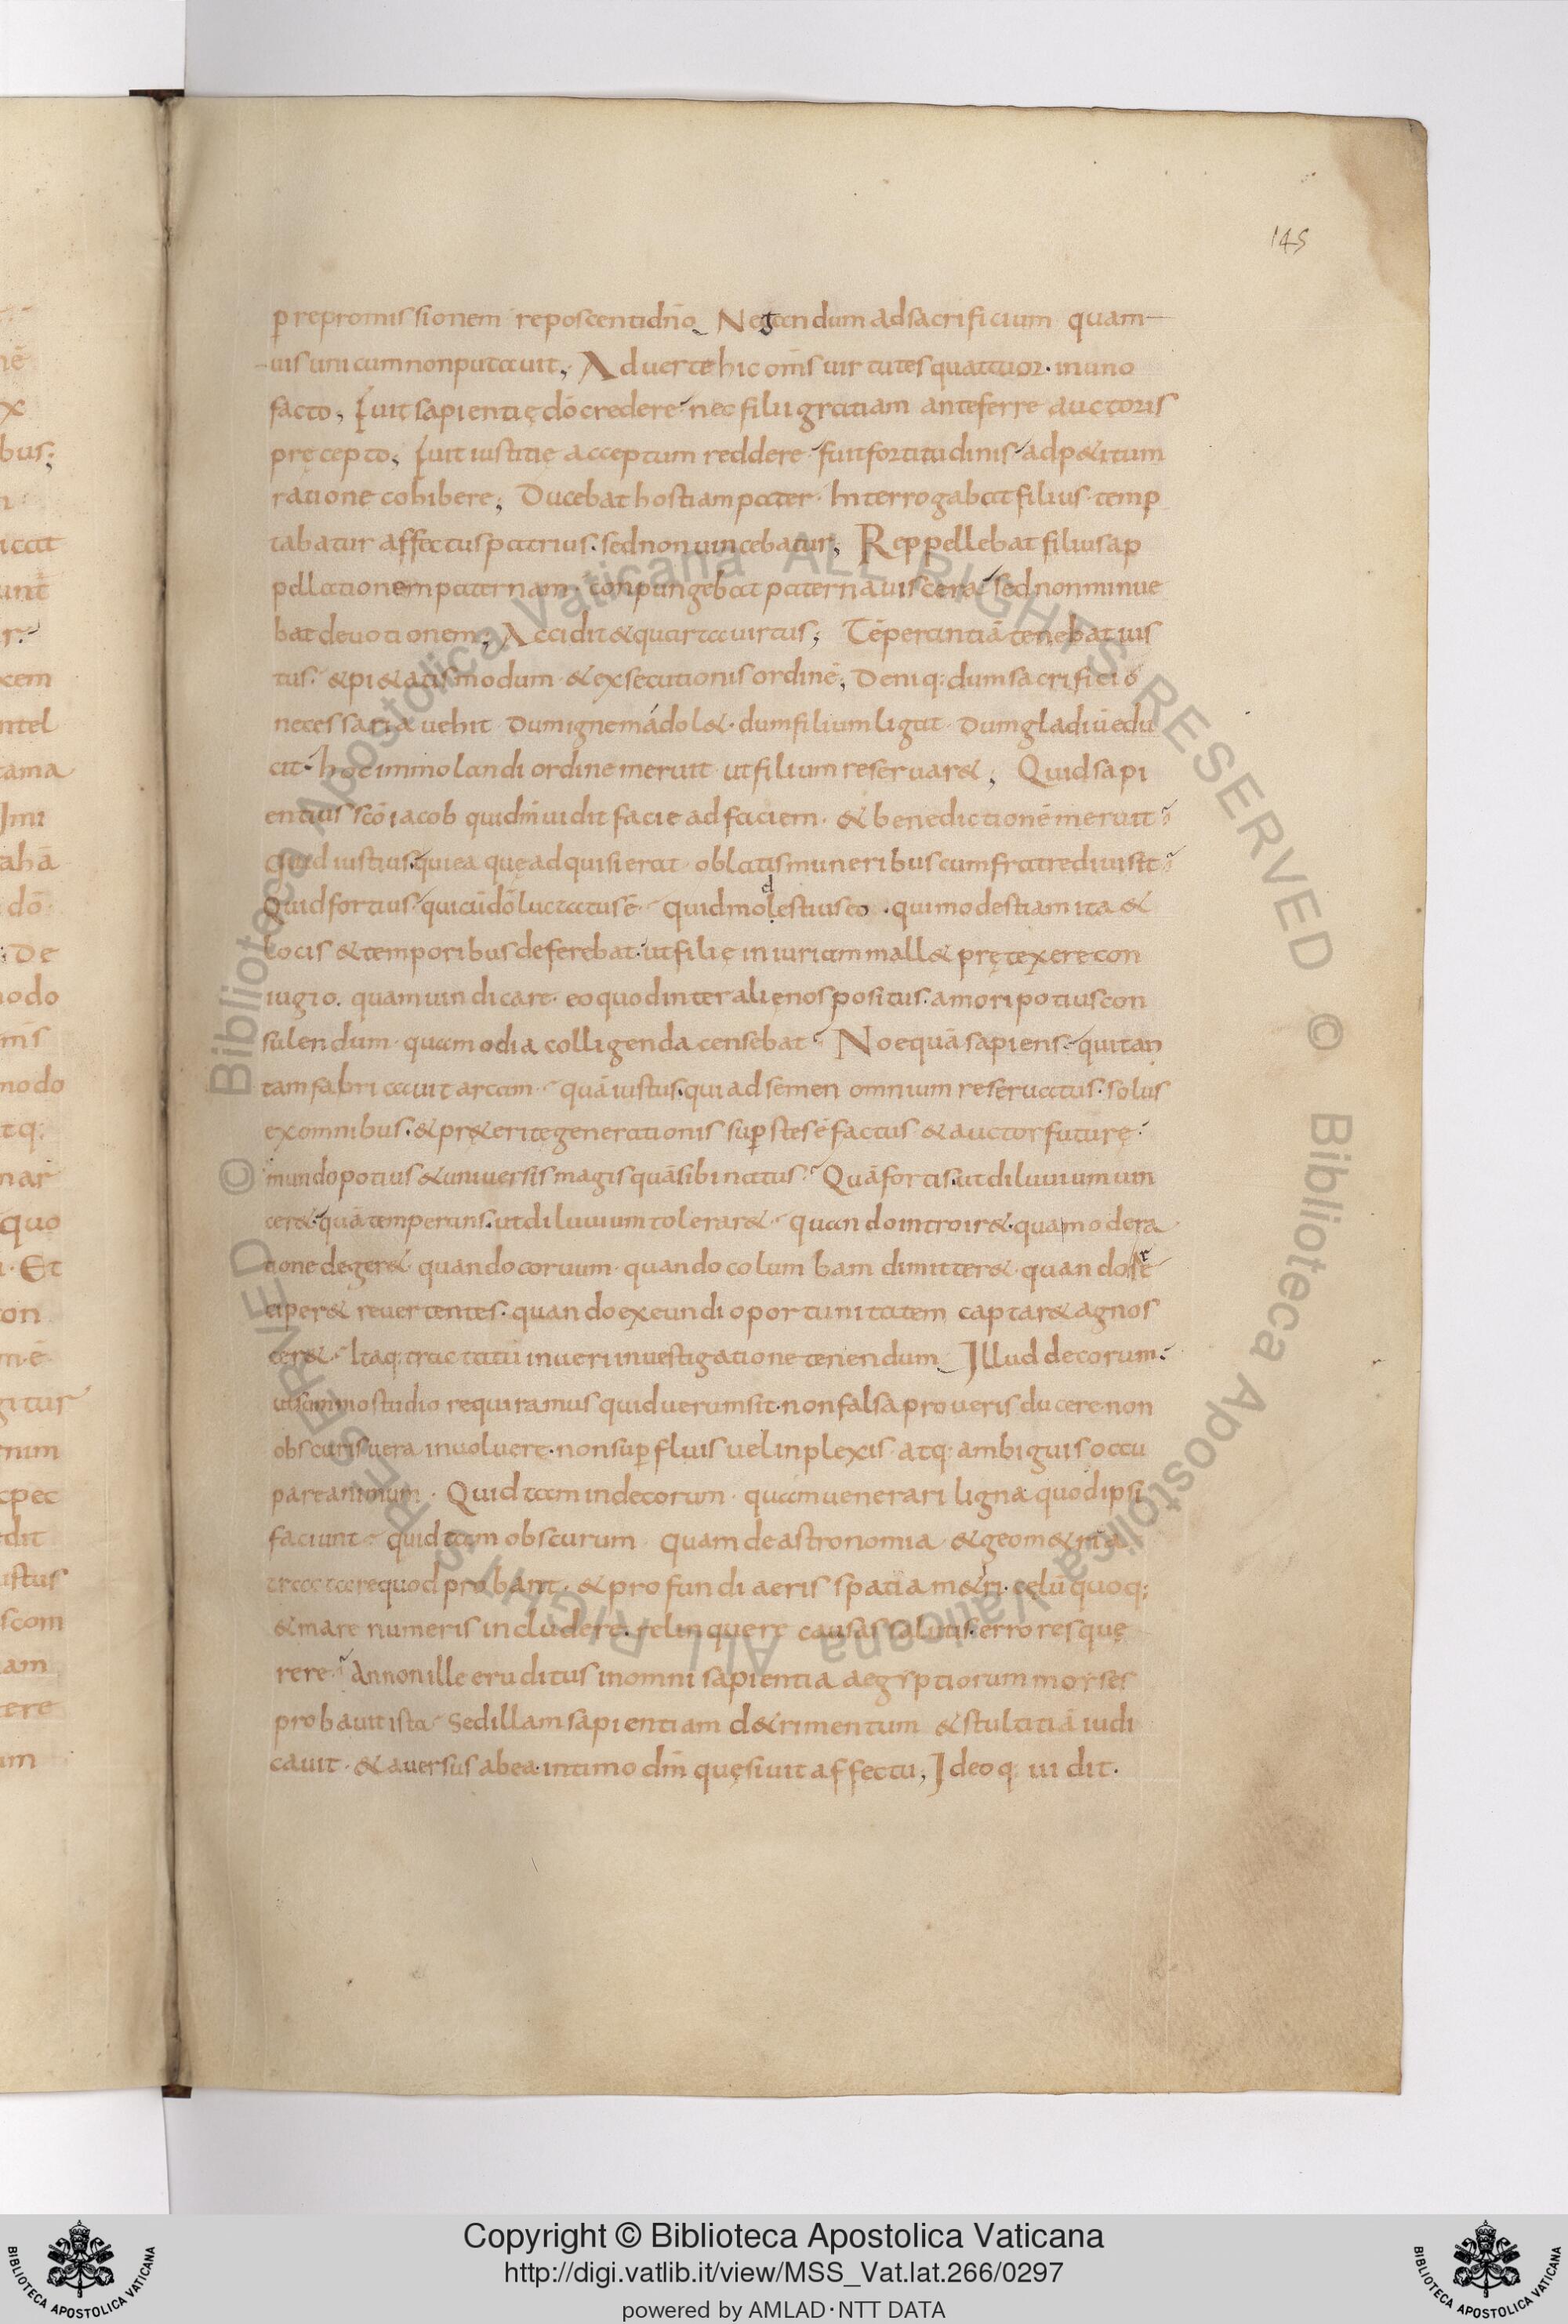 145
p repromissionem reposcenti dn̄o Negandum ad sacrificium quam
uis unicum non putauit; Aduerte hic om̄s uirtutes quattuor · in uno
facto; Fuit sapientię dō credere nec filii gratiam anteferre auctoris
pręcepto; Fuit iustitię acceptum reddere fuit fortitudinis adp&itum
ratione cohibere; Ducebat hostiam pater · Interrogabat filius · temp
tabatur affectus patrius · sed non uincebatur; Reppellebat filius ap
pellationem paternam · conpungebat paterna uiscera sed non minue
bat deuotionem; Accidit & quarta uirtus; Tēperantiā tenebat ius
tus · & pi&atis modum · & exsecutionis ordinē; Deniq: dum sacrificio
necessaria uehit · dum ignem adol& · dum filium ligat · dum gladiū edu
cit · hoc immolandi ordine meruit ut filium reseruar&; Quid sapi
entius scō iacob qui dm̄ uidit facie ad faciem · & benedictionē meruit
Quid iustius qui ea quę adquisierat oblatis muneribus cum fratre diuisit
Quid fortius qui cū dō luctatus ē · quid moldestius eo · qui modestiam ita &
locis & temporibus deferebat · ut filię iniuriam mall& prętexere con
iugio · quam uindicare · eo quod inter alienos positus · amori potius con
sulendum · quam odia colligenda censebat Noe quā sapiens qui tan
tam fabricauit arcam · quā iustus qui ad semen omnium reseruatus · solus
ex omnibus · & prę&eritę generationis sup̄stes ē factus & auctor futurę
mundo potius & uniuersis magis quā sibi natus Quā fortis ut diluuium uin
cer& quā temperans · ut diluuium tolerar& quando introir& · qua modera
tione deger& quando coruum · quando columbam dimitter& · quando re
ciper& reuertentes · quando exeundi oportunitatem captar& agnos
cer& · Itaq: tractatū in ueri inuestigatione tenendum Illud decorum
ut summo studio requiramus quid uerum sit · non falsa pro ueris ducere · non
obscuris uera inuoluere · non sup̄fluis uel inplexis · atq: ambiguis occu
pare animum · Quid tam indecorum · quam uenerari ligna quod ipsi
faciunt quid tam obscurum quam de astronomia & geom&ria
tractare quod probant · & profundi aeris spatia m&iri · cęlū quoq:
& mare numeris includere · relinquere causas salutis · errores quę
rere An non ille eruditus in omni sapientia aegyptiorum moyses
probauit ista Sed illam sapientiam d&rimentum & stultitiā iudi
cauit · & auersus ab ea · intimo dm̄ quęsiuit affectu; Ideoq: uidit ·
© Biblioteca Apostolica Vaticana ALL RIGHTS RESERVED © Biblioteca Apostolica Vaticana ALL RIGHTS RESERVED
Copyright © Biblioteca Apostolica Vaticana
http://digi.vatlib.it/view/MSS_Vat.lat.266/0297
powered by AMLAD·NTT DATA
BIBLIOTECA APOSTOLICA VATICANA
BIBLIOTECA APOSTOLICA VATICANA